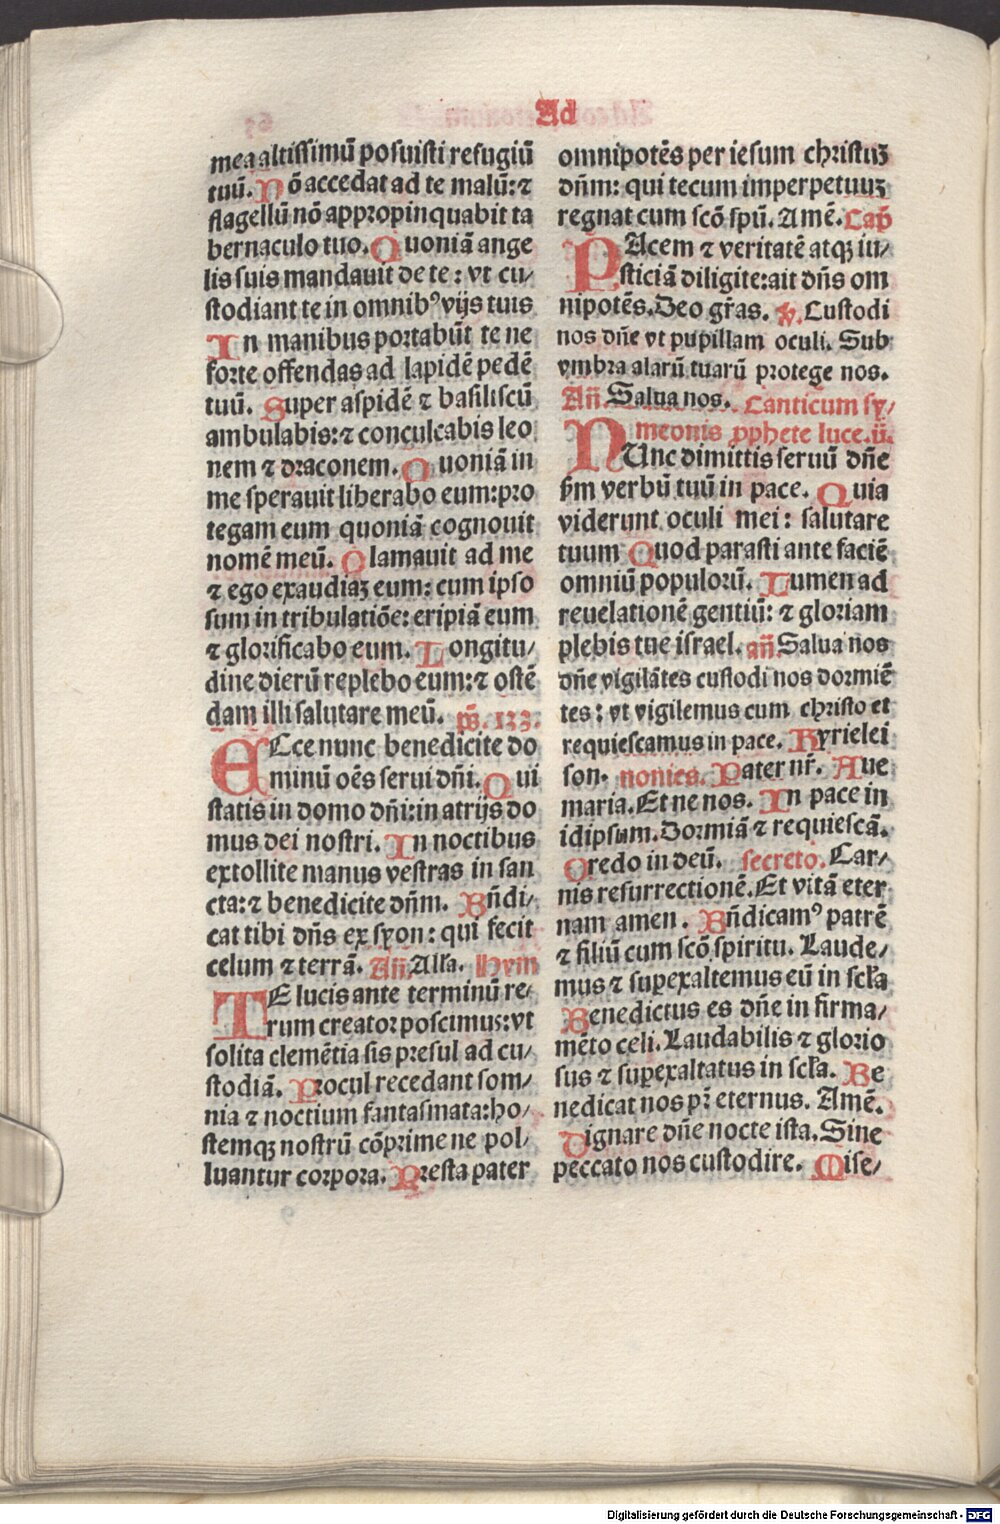 Ad
mea altissimū posuisti refugiū
tuū. Nō accedat ad te malū: ⁊
flagellū nō appropinquabit ta
bernaculo tuo. Quoniā ange
lis suis mandauit de te: vt cu/
stodiant te in omnibꝰ vijs tuis
In manibus portabūt te ne
forte offendas ad lapidē pedē
tuū. Super aspidē ⁊ basiliscū
ambulabis: ⁊ conculcabis leo
nem ⁊ draconem. Quoniā in
me sperauit liberabo eum: pro
tegam eum quoniā cognouit
nomē meū. Clamauit ad me
⁊ ego exaudiaꝫ eum: cum ipso
sum in tribulatiōe: eripiā eum
⁊ glorificabo eum. Longitu/
dine dierū replebo eum: ⁊ ostē
dam illi salutare meū. ps̄. 133.
ECce nunc benedicite do
minū oēs serui dn̄i. Qui
statis in domo dn̄i: in atrijs do
mus dei nostri. In noctibus
extollite manus vestras in san
cta: ⁊ benedicite dn̄m. Bn̄di/
cat tibi dn̄s ex syon: qui fecit
celum ⁊ terrā. An̄. Alla. Hym
TE lucis ante terminū re/
rum creator poscimus: vt
solita clemētia sis presul ad cu/
stodiā. Procul recedant som/
nia ⁊ noctium fantasmata: ho/
stemqꝫ nostrū cōprime ne pol/
luantur corpora. Presta pater
omnipotēs per iesum christuꝫ
dn̄m: qui tecum imperpetuuꝫ
regnat cum scō spū. Amē. Cap̄
PAcem ⁊ veritatē atqꝫ iu/
sticiā diligite: ait dn̄s om
nipotēs. Deo gr̄as. ℣. Custodi
nos dn̄e vt pupillam oculi. Sub
vmbra alarū tuarū protege nos.
An̄. Salua nos. Canticum sy/
meonis ꝓphete luce. ij.
NUnc dimittis seruū dn̄e
ẜm verbū tuū in pace. Quia
viderunt oculi mei: salutare
tuum Quod parasti ante faciē
omniū populorū. Lumen ad
reuelationē gentiū: ⁊ gloriam
plebis tue israel. an̄. Salua nos
dn̄e vigilātes custodi nos dormiē
tes: vt vigilemus cum christo et
requiescamus in pace. Kyrielei
son. nonies. Pater nr̄. Aue
maria. Et ne nos. In pace in
idipsum. Dormiā ⁊ requiescā.
Credo in deū. secreto. Car/
nis resurrectionē. Et vitā eter
nam amen. Bn̄dicamꝰ patrē
⁊ filiū cum scō spiritu. Laude/
mus ⁊ suꝑexaltemus eū in scl̄a
Benedictus es dn̄e in firma/
mēto celi. Laudabilis ⁊ glorio
sus ⁊ suꝑexaltatus in scl̄a. Be
nedicat nos pr̄ eternus. Amē.
Dignare dn̄e nocte ista. Sine
peccato nos custodire. Mise/
Digitalisierung gefördert durch die Deutsche Forschungsgemeinschaft - DFG